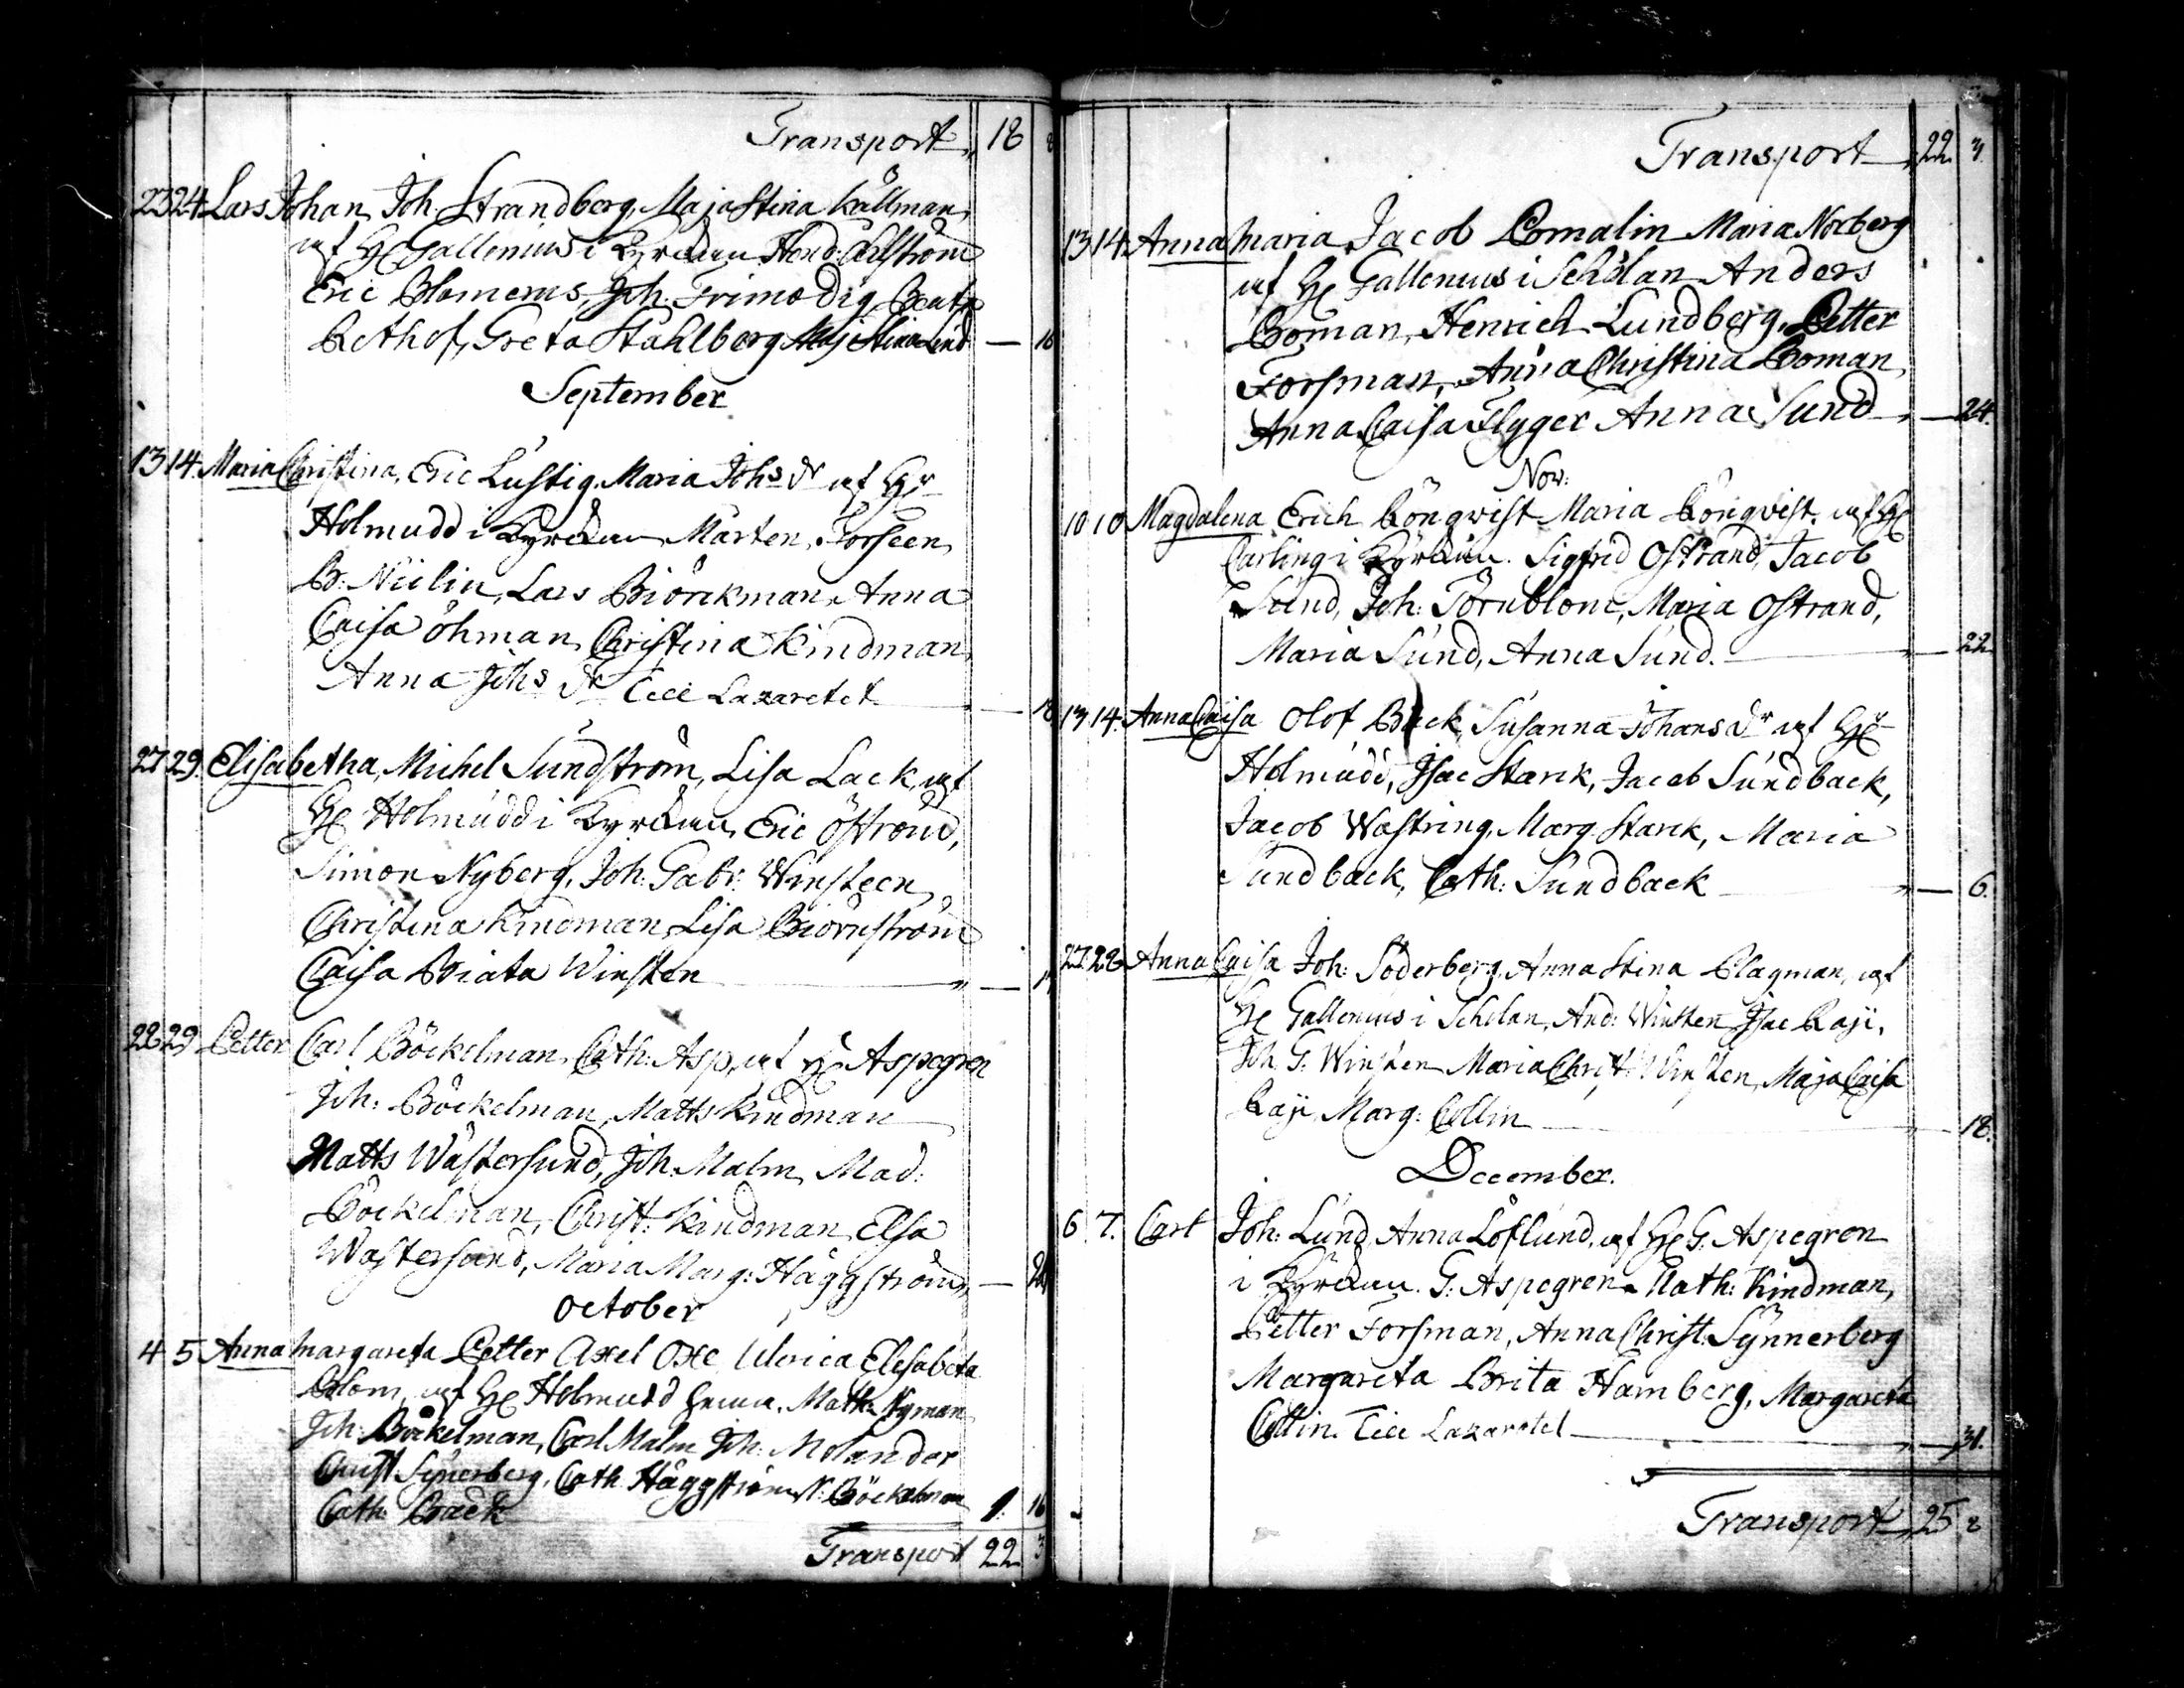 Transport 18 8
23 24 Lars Johan, Joh. Strandberg, Maja Stina Källman
af Hr Gallenius i Kyrckan
Eric Blomerus, Joh. Frimodig, Beata
Rethof, Greta Ståhlberg, Maj Stina Lind — 16
September
13 14. Maria Christina, Eric Lustig, Maria Johs dr af Hr
Holmudd i Kyrckan Mårten Forseen,
B: Niilin, Lars Biörckman, Anna
Caisa Öhman, Christina Kindman,
Anna Johs dr Till Lazaretet —
27 29. Elisabetha, Michel Sundström, Lisa Lack, af
Hr Holmudd i Kyrckan, Eric Östrand,
Simon Nyberg, Joh: Gabr: Winsteen,
Christina Kindman, Lisa Biörnström
Caisa Biata Winsten —
28 29 Petter Carl Böckelman, Cath: Asp, af Hr Aspegren
Joh: Böckelman, Matts Kindman
Matts Wästersund, Joh: Malm, Mad:
Böckelman, Christ: Kindman, Elsa
Wästersund, Maria Marg: Häggström, —
October
4 5 Anna Margareta Petter Axel Oxe Ulrica Elisabeta
Blom, af Hr Holmudd hemma. Math: Nyman
Joh: Böckelman, Carl Malm Joh: Molander
Christ Synerberg, Cath. Häggström, Böckelman
Cath: Back 1. 16
Transport 22 3
Transport 22 3.
13 14 Anna Maria Jacob Pomalin Maria Norberg
af Hr Gallenius i Scholan Anders
Boman, Henrich Lundberg, Petter
Forsman, Anna Christina Boman,
Anna Caisa Flyger Anna Sund — 24.
Nov:
10 10 Magdalena Erich Lönqvist Maria Lönqvist. af Hr
Carling i Kyrckan. Sigfrid Ostrand, Jacob
Sund, Joh: Törnblom, Maria Ostrand,
Maria Sund, Anna Sund. — 22
13 14. Anna Caisa Olof Back, Susanna Johans dr af Hr
Holmudd, Isac Starck, Jacob Sundback,
Jacob Wästring, Marg. Starck, Maria
Sundback, Cath: Sundback — 6.
27 28 Anna Caisa Joh: Söderberg, Anna Stina Plagman, af
Hr Gallenius i Scholan, And: Winsten Isac Raji,
Joh. G: Winsten Maria Christ: Winsten, Maja Caisa
Raji, Marg: Collin — 18.
December.
6 7. Carl Joh: Lund, Anna Löflund, af Hr G: Aspegren
i Kyrckan. G: Aspegren Nath: Kindman,
Petter Forsman, Anna Christ: Synnerberg
Margareta Brita Hamberg, Margareta
Collin. Till Lazaretet — 31.
Transport 25 8